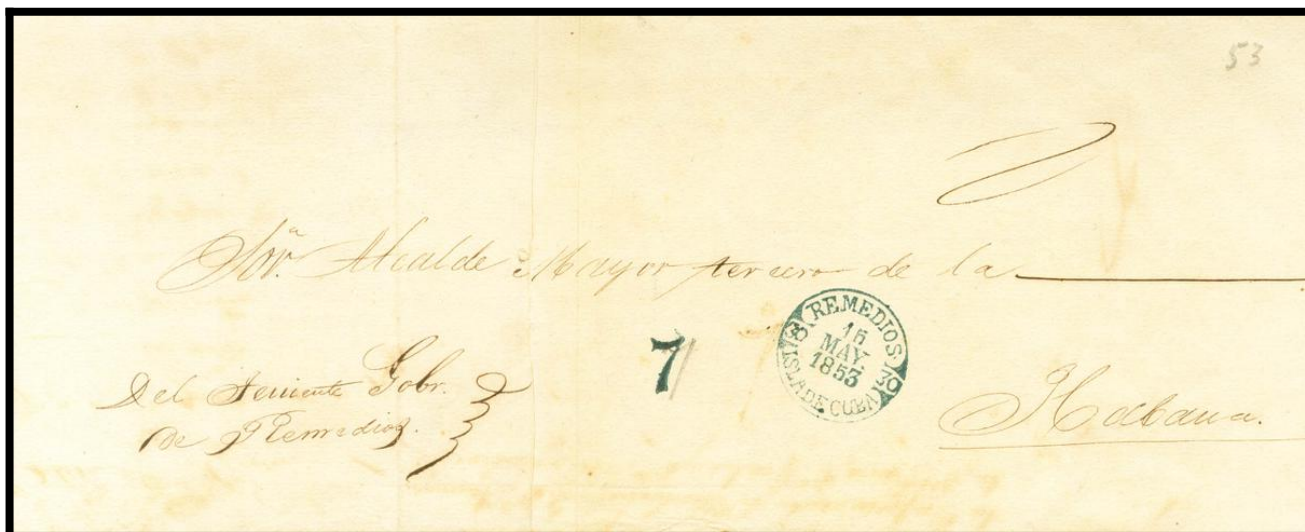 53
Sor.ⁿ Alcalde Mayor tercero de la
7
REMEDIOS
16
MAY.
1853
ISLA DE CUBA
Del Teniente Gobr.
de Remedios.
Habana.